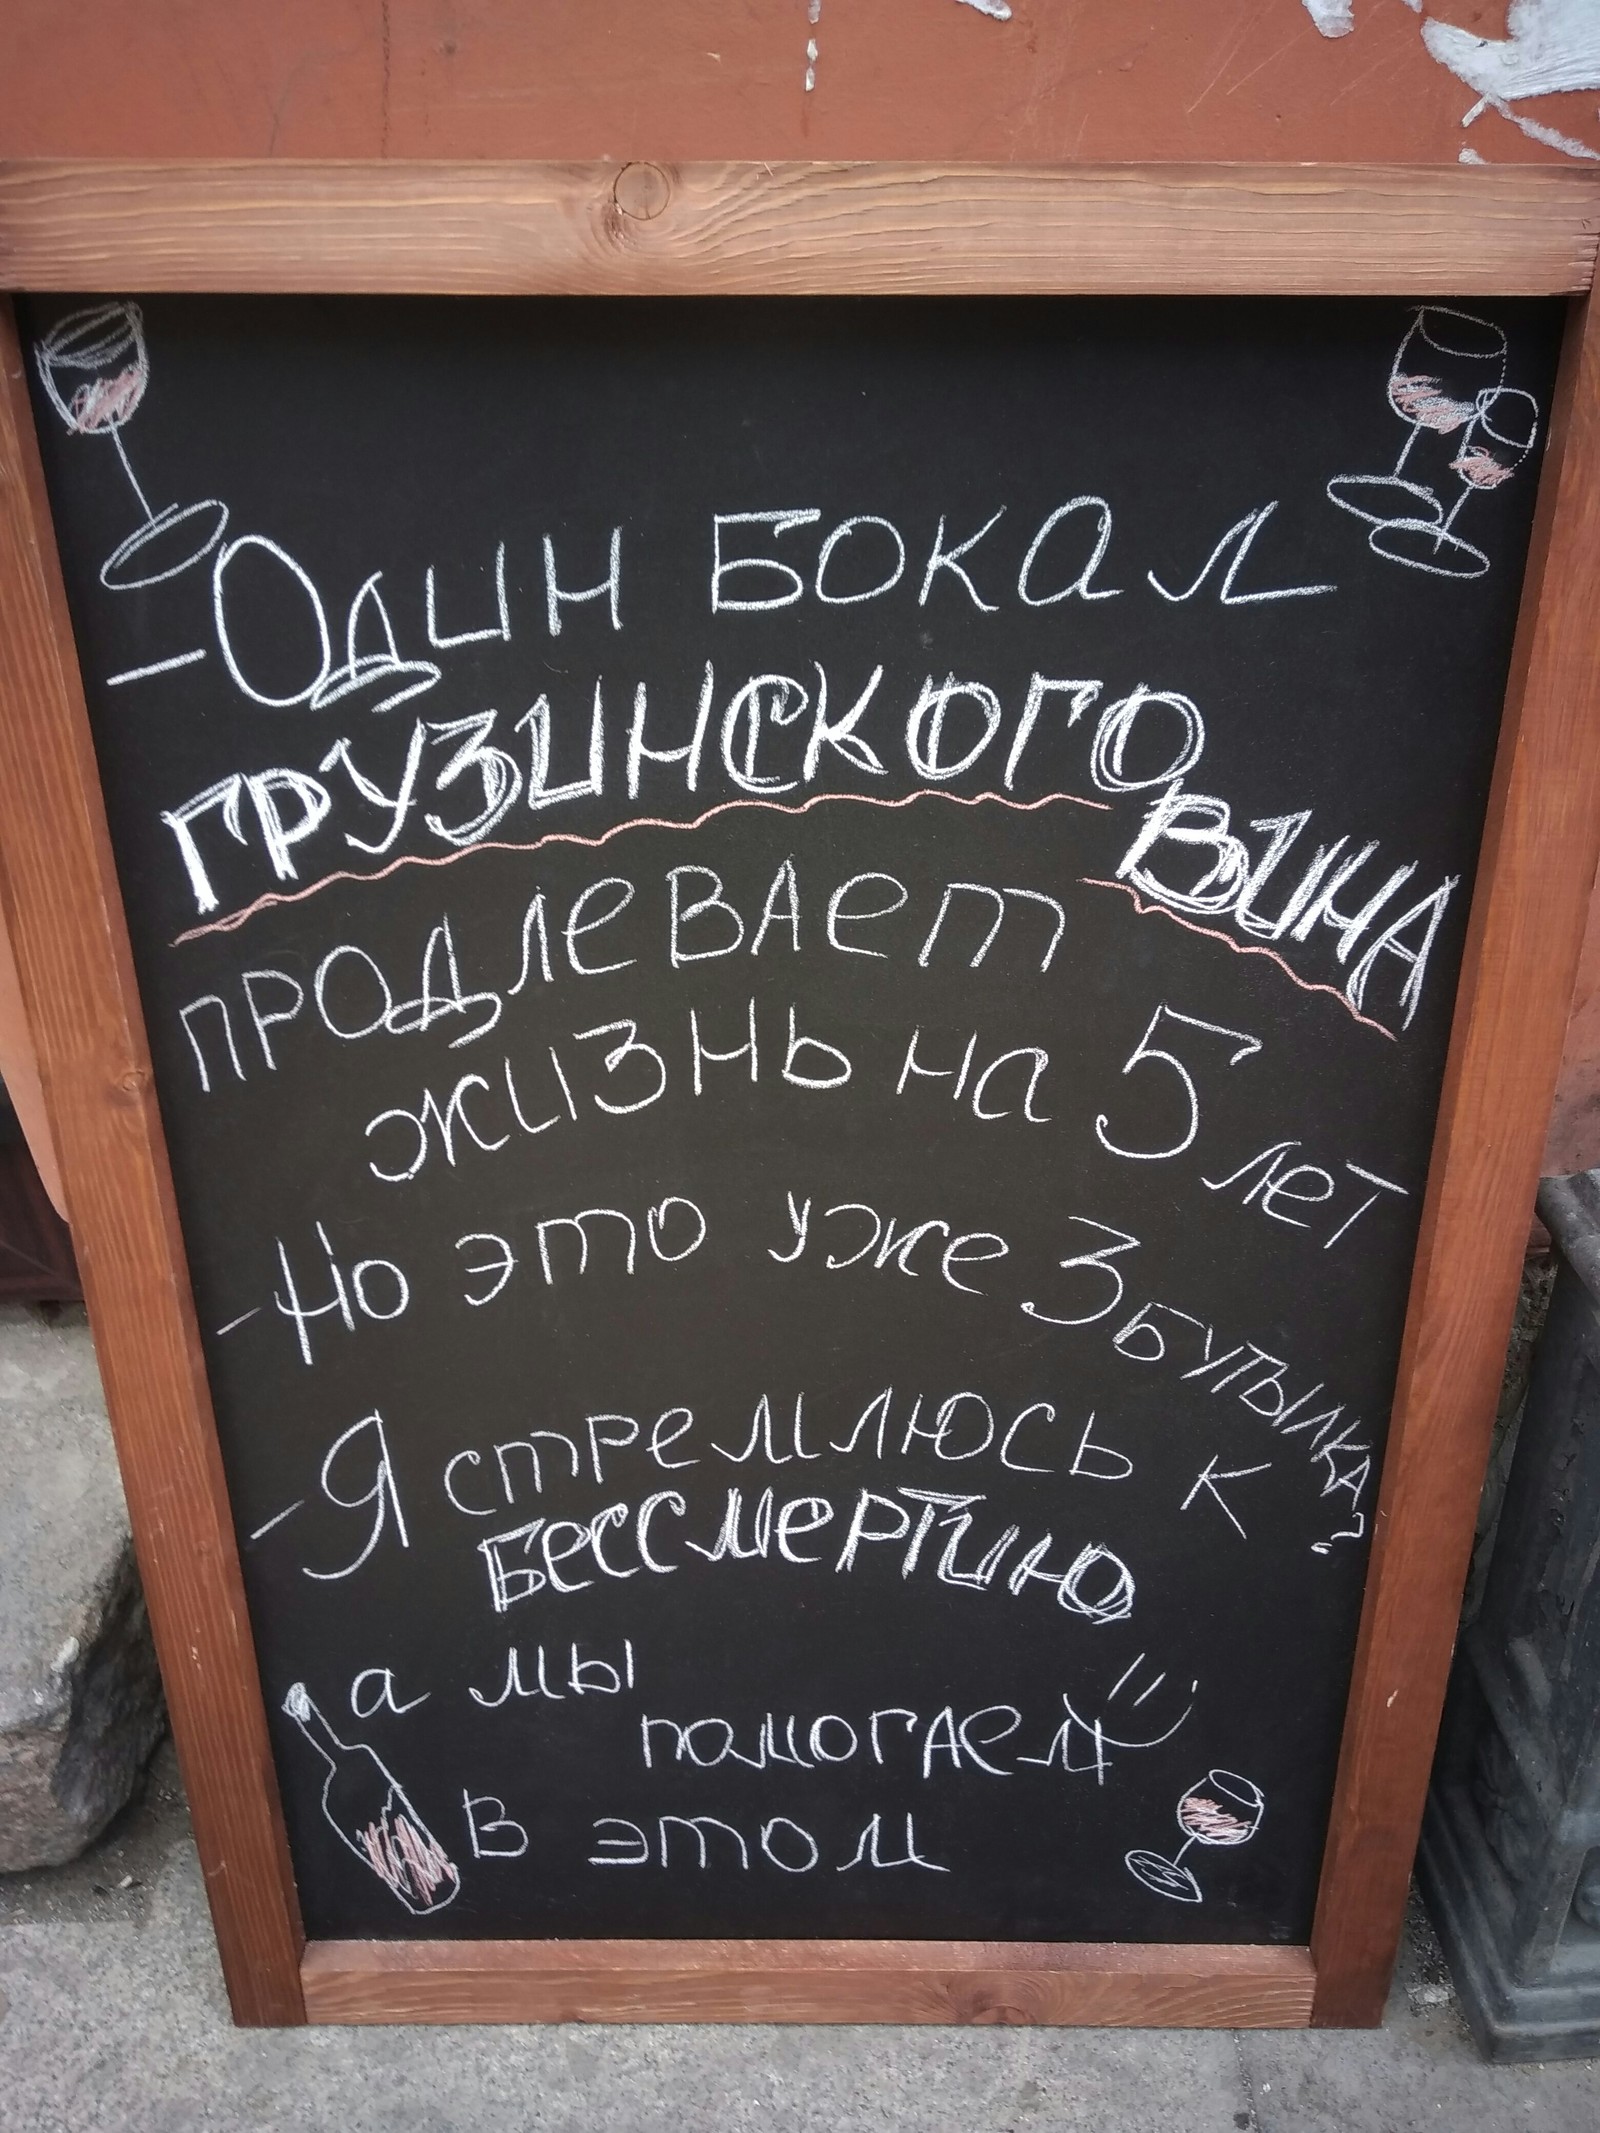 -Один бокал
грузинского вина
продлевает
жизнь на 5 лет
-Но это уже 3 бутылка?
-Я стремлюсь к
бессмертию
а мы
помогаем
в этом